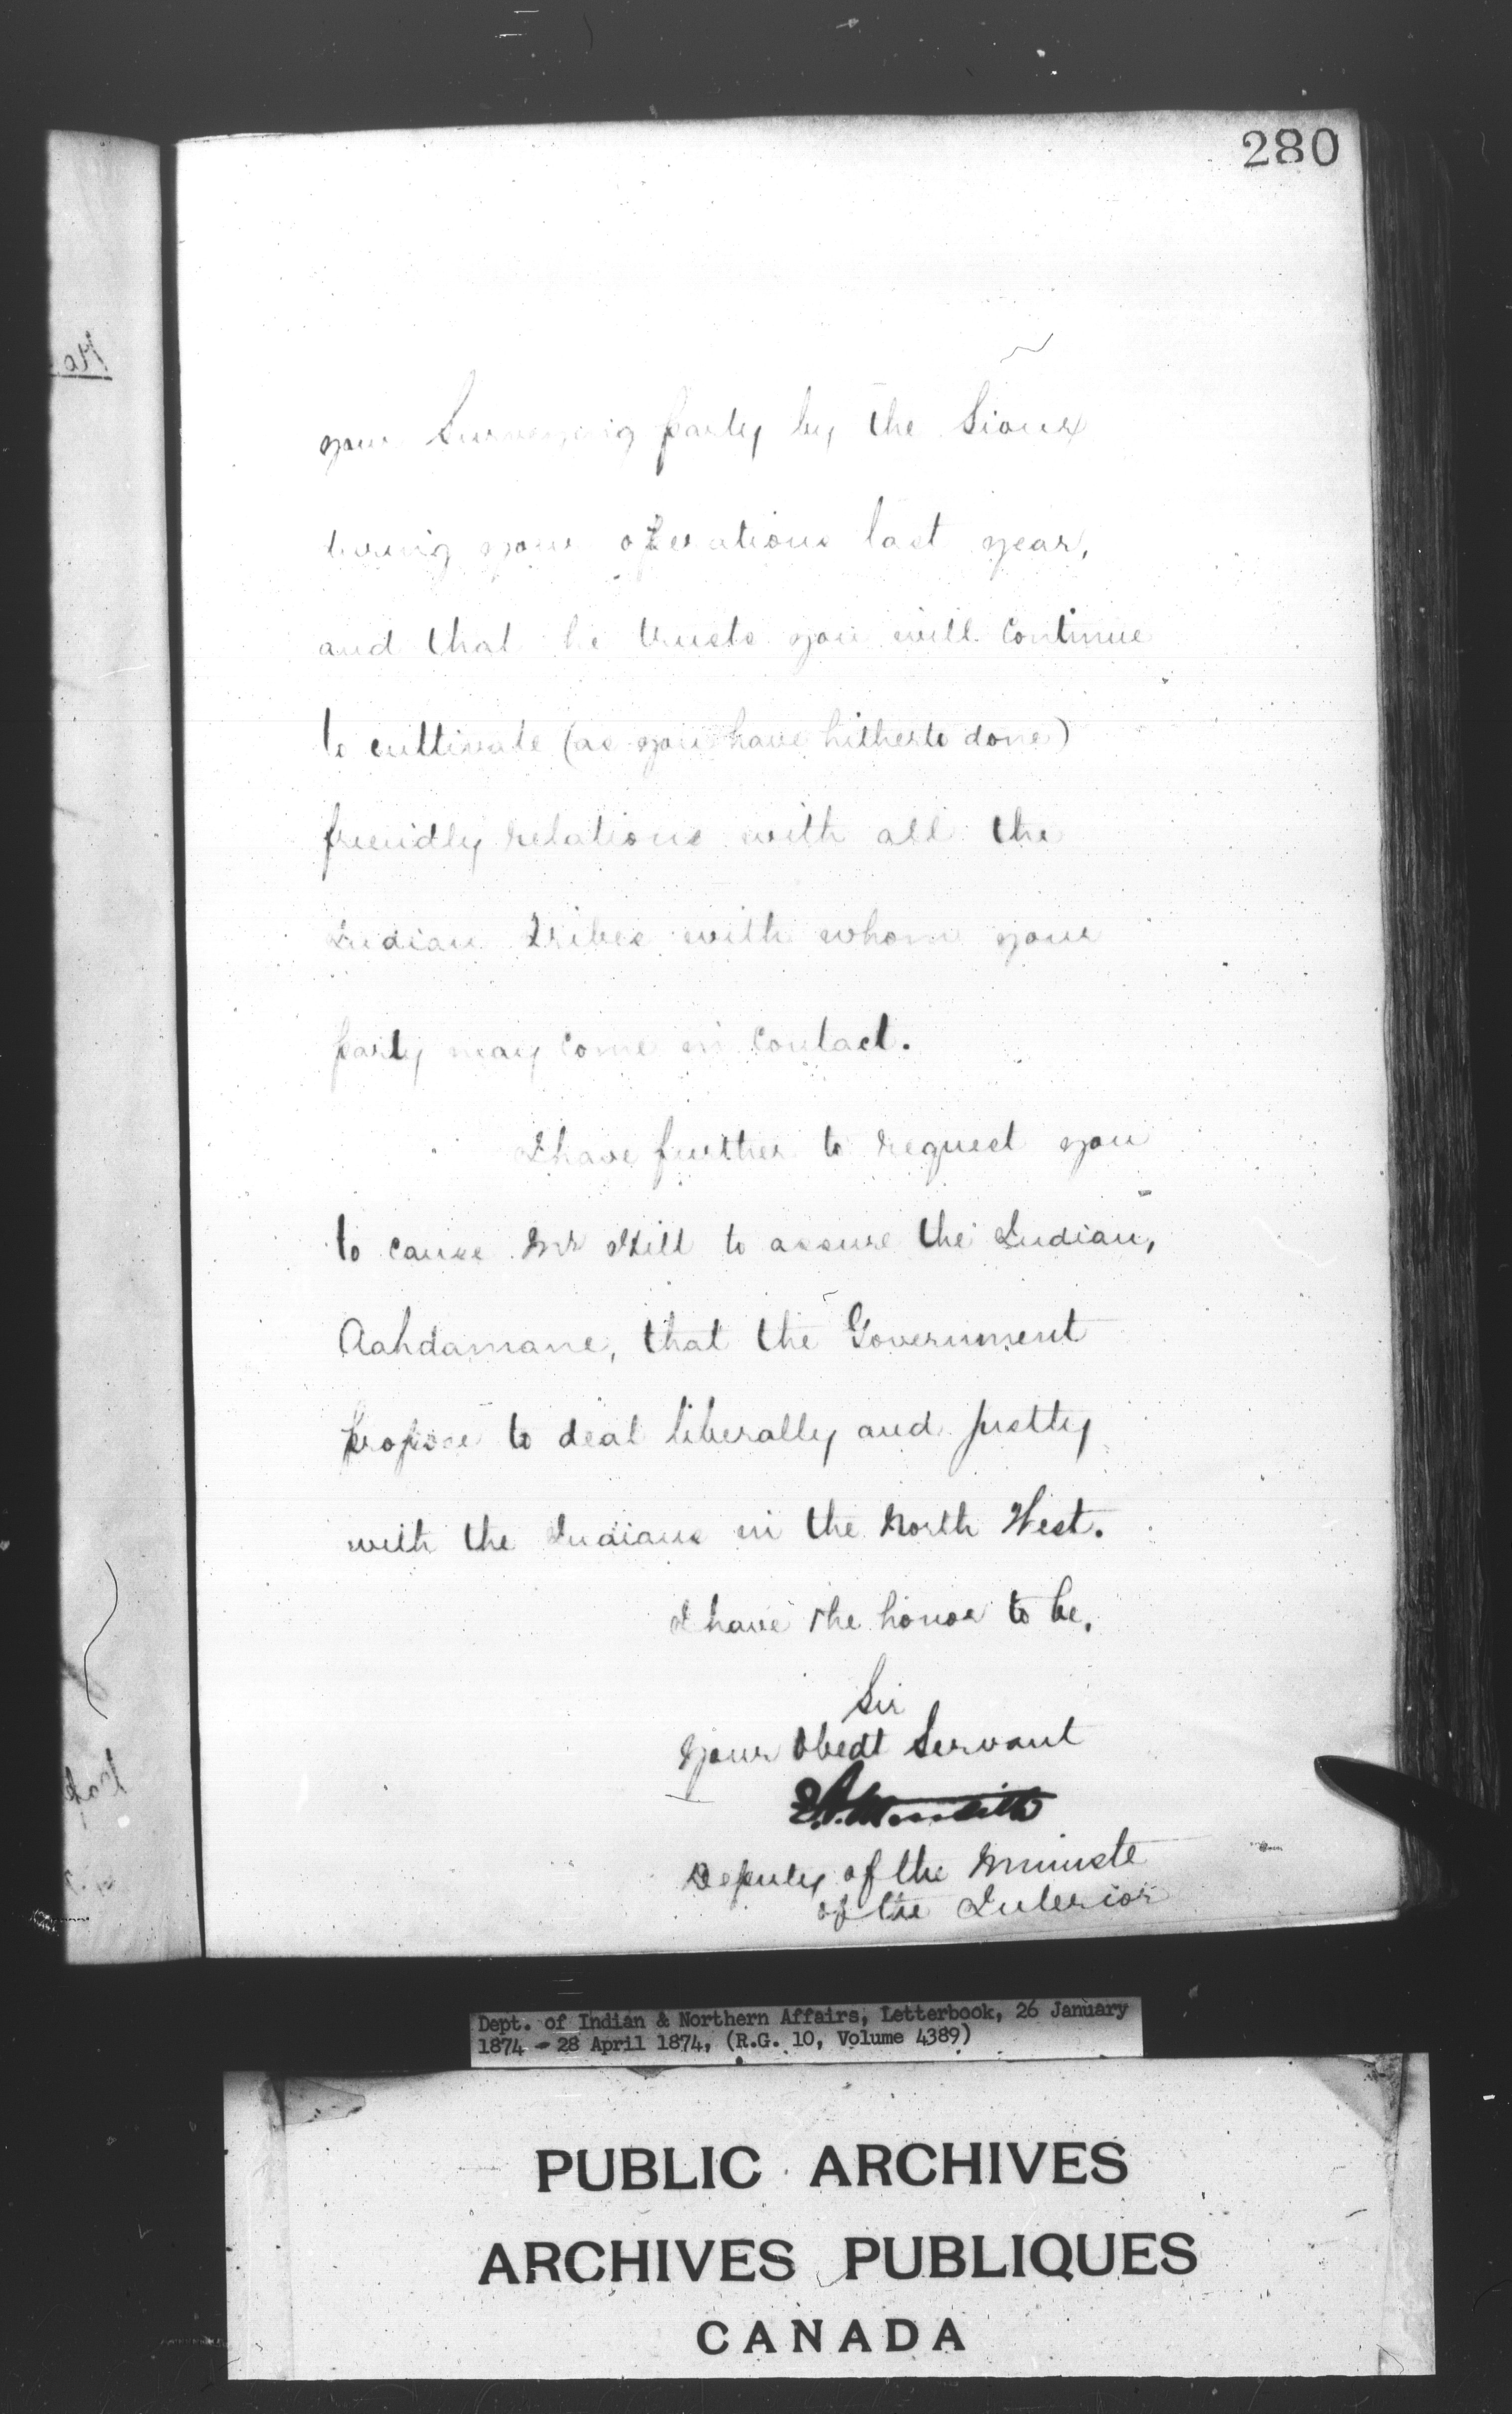 280
your Surveying party by the Sioux
during your operations last year,
and that he trusts you will continue
to cultivate (as you have hitherto done)
friendly relations with all the
Indian tribes with whom your
party may come in contact.
I have further to request you
to cause Mr Hill to assure the Indian,
Aahdamane, that the Government
propose to deal liberally and justly
with the Indians in the North West.
I have the honor to be,
Sir
Your Obedt Servant
E.A. Meredith
Deputy of the Ministe
of the Interior
Dept. of Indian & Northern Affairs, Letterbook, 26 January
1874 - 28 April 1874, (R.G. 10, Volume 4389)
PUBLIC ARCHIVES
ARCHIVES PUBLIQUES
CANADA